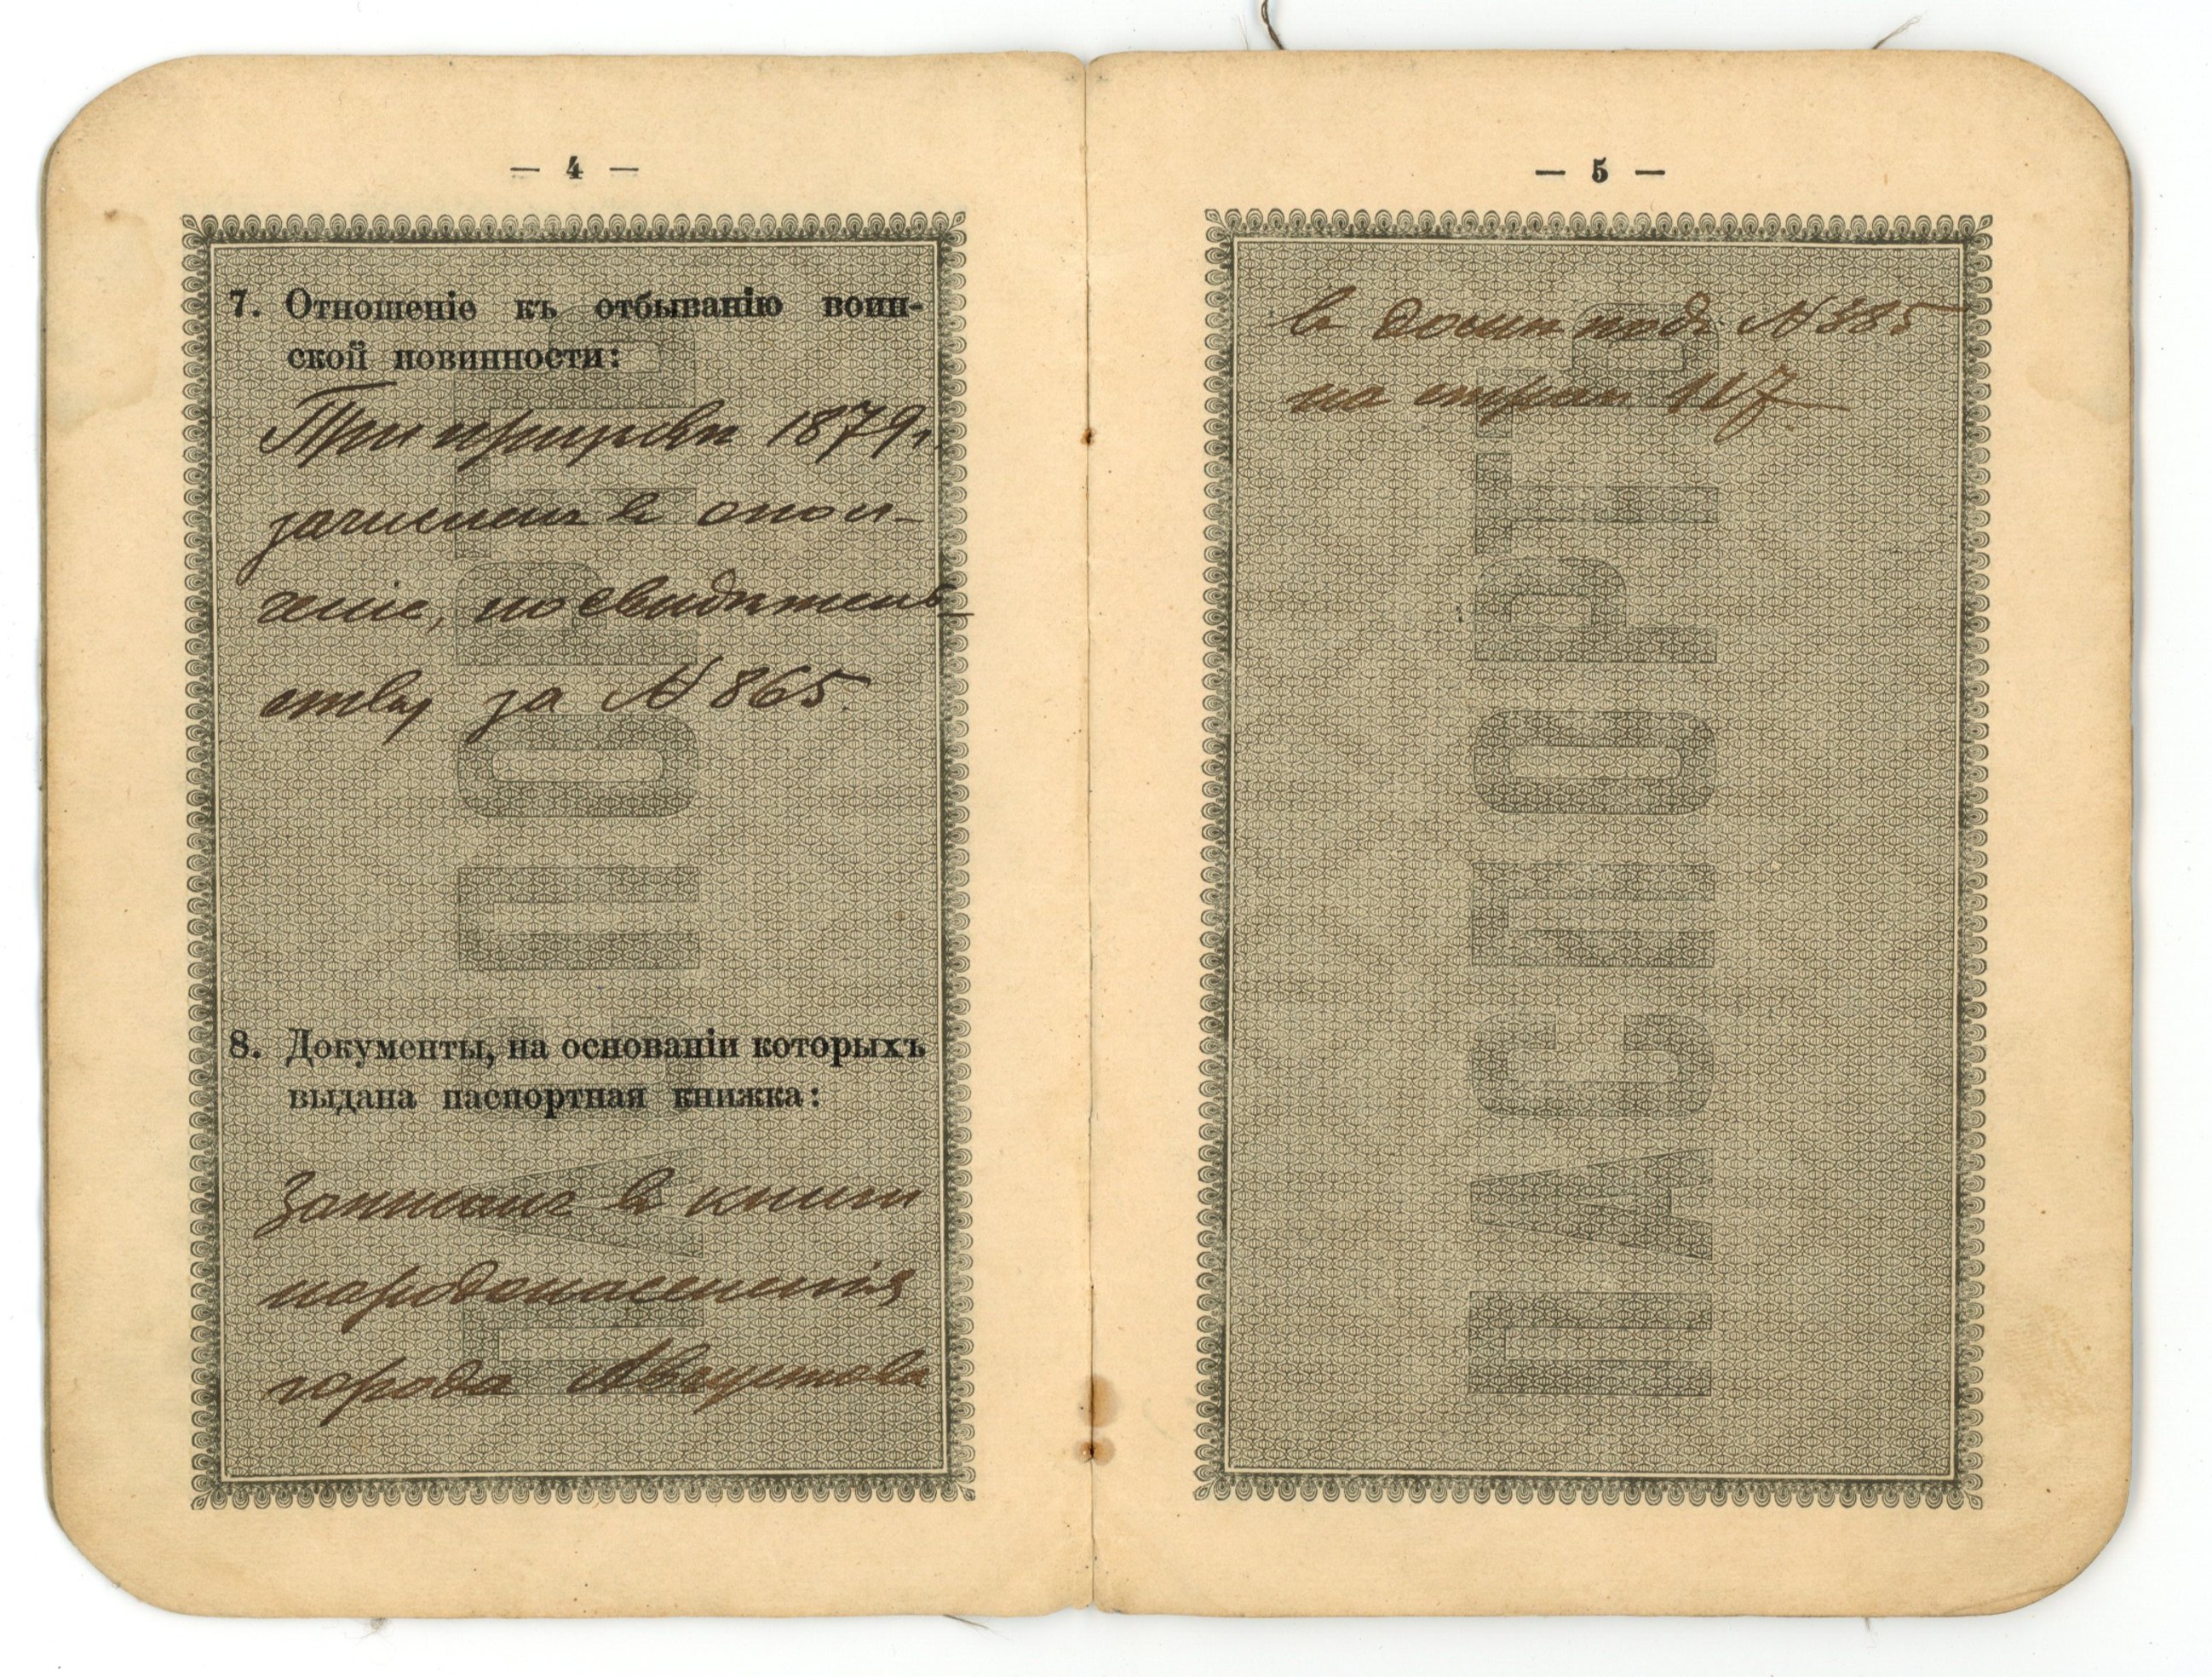 — 4 —
7. Отношеніе къ отбыванію воин-
ской повинности:
При призывѣ 1879 г.
зачисленъ въ опол-
ченіе, по свидѣтель-
ству за № 865.
8. Документы, на основаніи которыхъ
выдана паспортная книжка:
Записанъ въ книги
народонаселенія
города Августова
— 5 —
въ домѣ подъ № 385
на стран 117
ПАСПОРТЪ
ПАСПОРТЪ